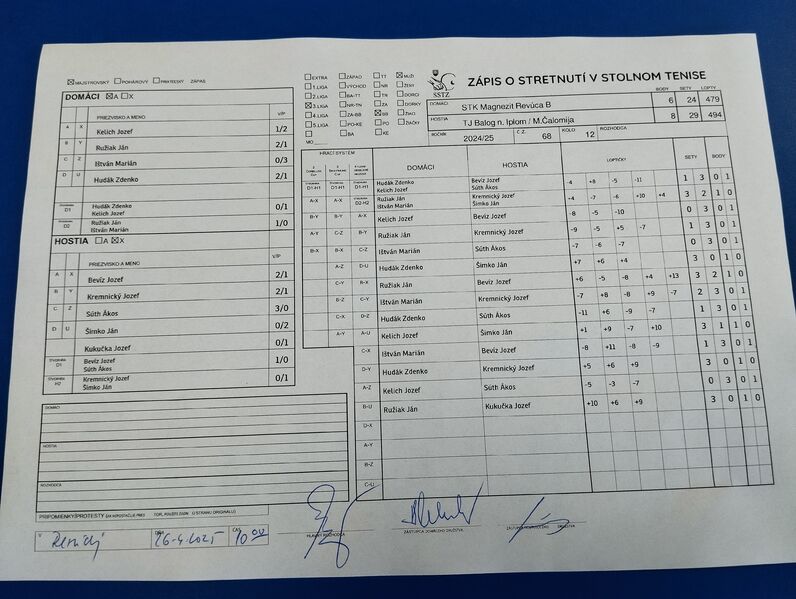 MAJSTROVSKÝ POHÁROVÝ PRIATEĽSKÝ ZÁPAS
EXTRA ZÁPAD TT MUŽI
1.LIGA VÝCHOD NR ŽENY
2.LIGA BA-TT TN DORCI
3.LIGA NR-TN ZA DORKY
4.LIGA ZA-BB BB ŽIACI
5.LIGA PO-KE PO ŽIAČKY
BA KE
MO
SSTZ
ZÁPIS O STRETNUTÍ V STOLNOM TENISE
BODY SETY LOPTY
DOMÁCI: STK Magnezit Revúca B 6 24 479
HOSTIA TJ Balog n. Iplom / M.Čalomija 8 29 494
ROČNÍK 2024/25 Č.Z. 68 KOLO: 12 ROZHODCA
DOMÁCI A X
PRIEZVISKO A MENO V/P
A X Kelich Jozef 1/2
B Y Ružiak Ján 2/1
C Z Ištván Marián 0/3
D U Hudák Zdenko 2/1
ŠTVORHRA D1 Hudák Zdenko
Kelich Jozef 0/1
ŠTVORHRA D2 Ružiak Ján
Ištván Marián 1/0
HOSTIA A X
PRIEZVISKO A MENO V/P
A X Bevíz Jozef 2/1
B Y Kremnický Jozef 2/1
C Z Süth Ákos 3/0
D U Šimko Ján 0/2
Kukučka Jozef 0/1
ŠTVORHRA D1 Bevíz Jozef
Süth Ákos 1/0
ŠTVORHRA H2 Kremnický Jozef
Šimko Ján 0/1
HRACÍ SYSTÉM DOMÁCI HOSTIA LOPTIČKY SETY BODY
D1-H1 D1-H1 D1-H1 Hudák Zdenko Kelich Jozef Bevíz Jozef Süth Ákos -4 +8 -5 -11 1 3 0 1
A-X A-X D2-H2 Ružiak Ján Ištván Marián Kremnický Jozef Šimko Ján -4 -7 -6 +10 +4 3 2 1 0
B-Y B-Y A-X Kelich Jozef Bevíz Jozef -8 -5 -10 0 3 0 1
A-Y C-Z B-Y Ružiak Ján Kremnický Jozef -9 -5 +5 -7 1 3 0 1
B-X B-X C-Z Ištván Marián Süth Ákos -7 -6 -7 0 3 0 1
A-Z D-U Hudák Zdenko Šimko Ján +7 +6 +4 3 0 1 0
C-Y Ružiak Ján Bevíz Jozef +6 -5 -8 +4 +13 3 2 1 0
B-Z C-Y Ištván Marián Kremnický Jozef -7 +8 -8 +9 -7 2 3 0 1
C-X D-Z Hudák Zdenko Süth Ákos -11 +6 -9 -7 1 3 0 1
A-Y A-U Kelich Jozef Šimko Ján +1 +9 -7 +10 3 1 1 0
C-X Ištván Marián Bevíz Jozef -8 +11 -8 -9 1 3 0 1
D-Y Hudák Zdenko Kremnický Jozef +5 +6 +9 3 0 1 0
A-Z Kelich Jozef Süth Ákos -5 -3 -7 0 3 0 1
B-U Ružiak Ján Kukučka Jozef +10 +6 +9 3 0 1 0
D-X
A-Y
B-Z
C-U
DOMÁCI
HOSTIA
ROZHODCA
PRIPOMIENKY/PROTESTY
V DŇA 26-4-2025 ČAS 10 00
HLAVNÝ ROZHODCA ZÁSTUPCA DOMÁCEHO DRUŽSTVA